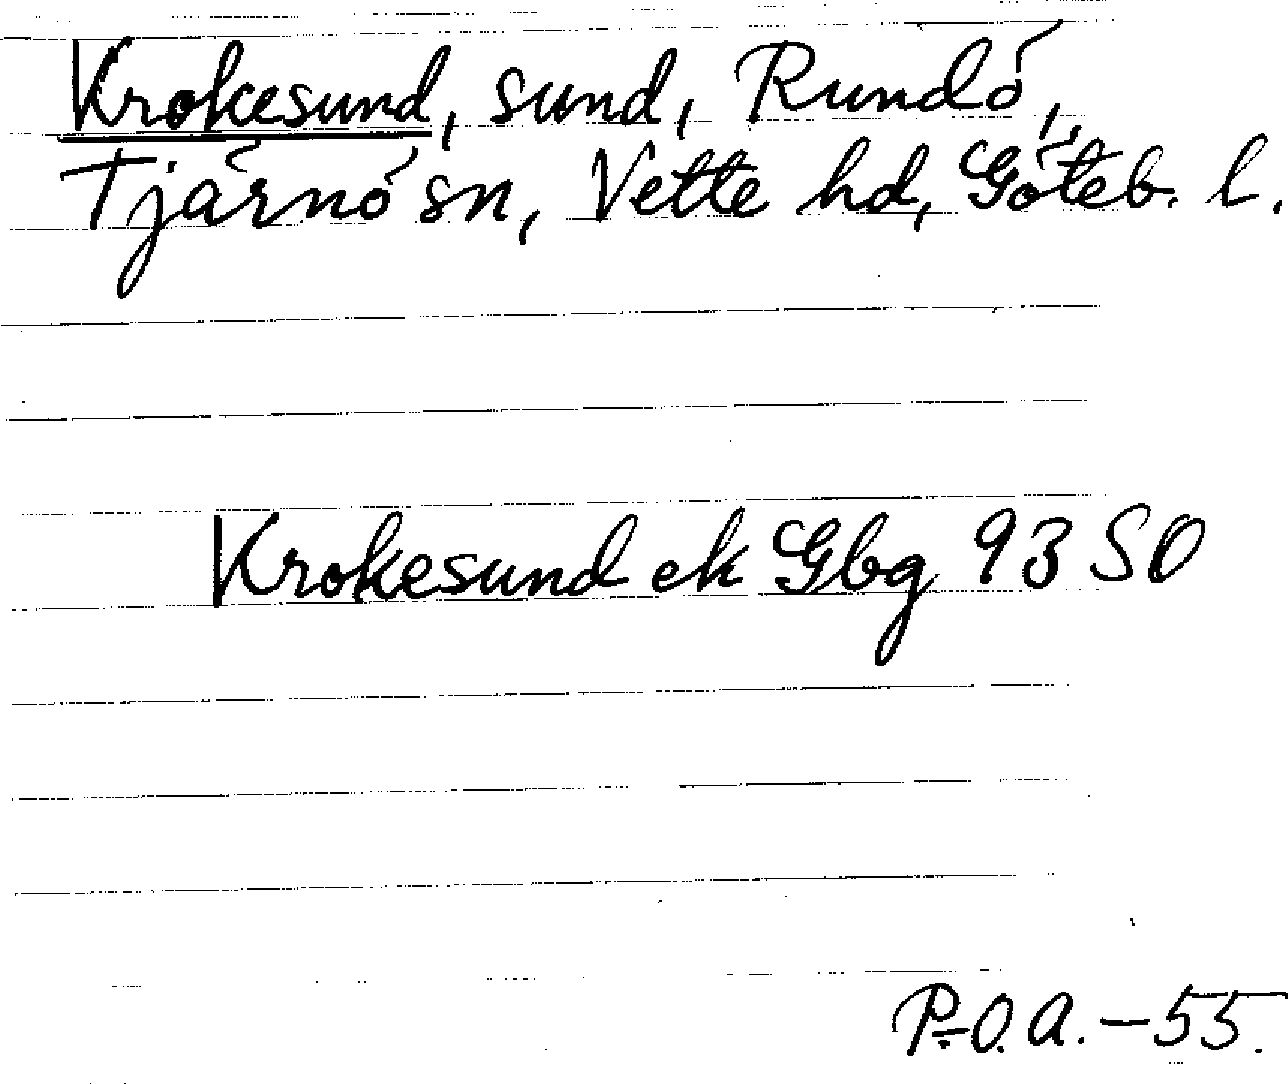 Krokesund, sund, Rundö,
Tjärnö sn, Vette hd, Göteb. l.
Krokesund ek Gbg 93 SO
P.-O. A. -55.